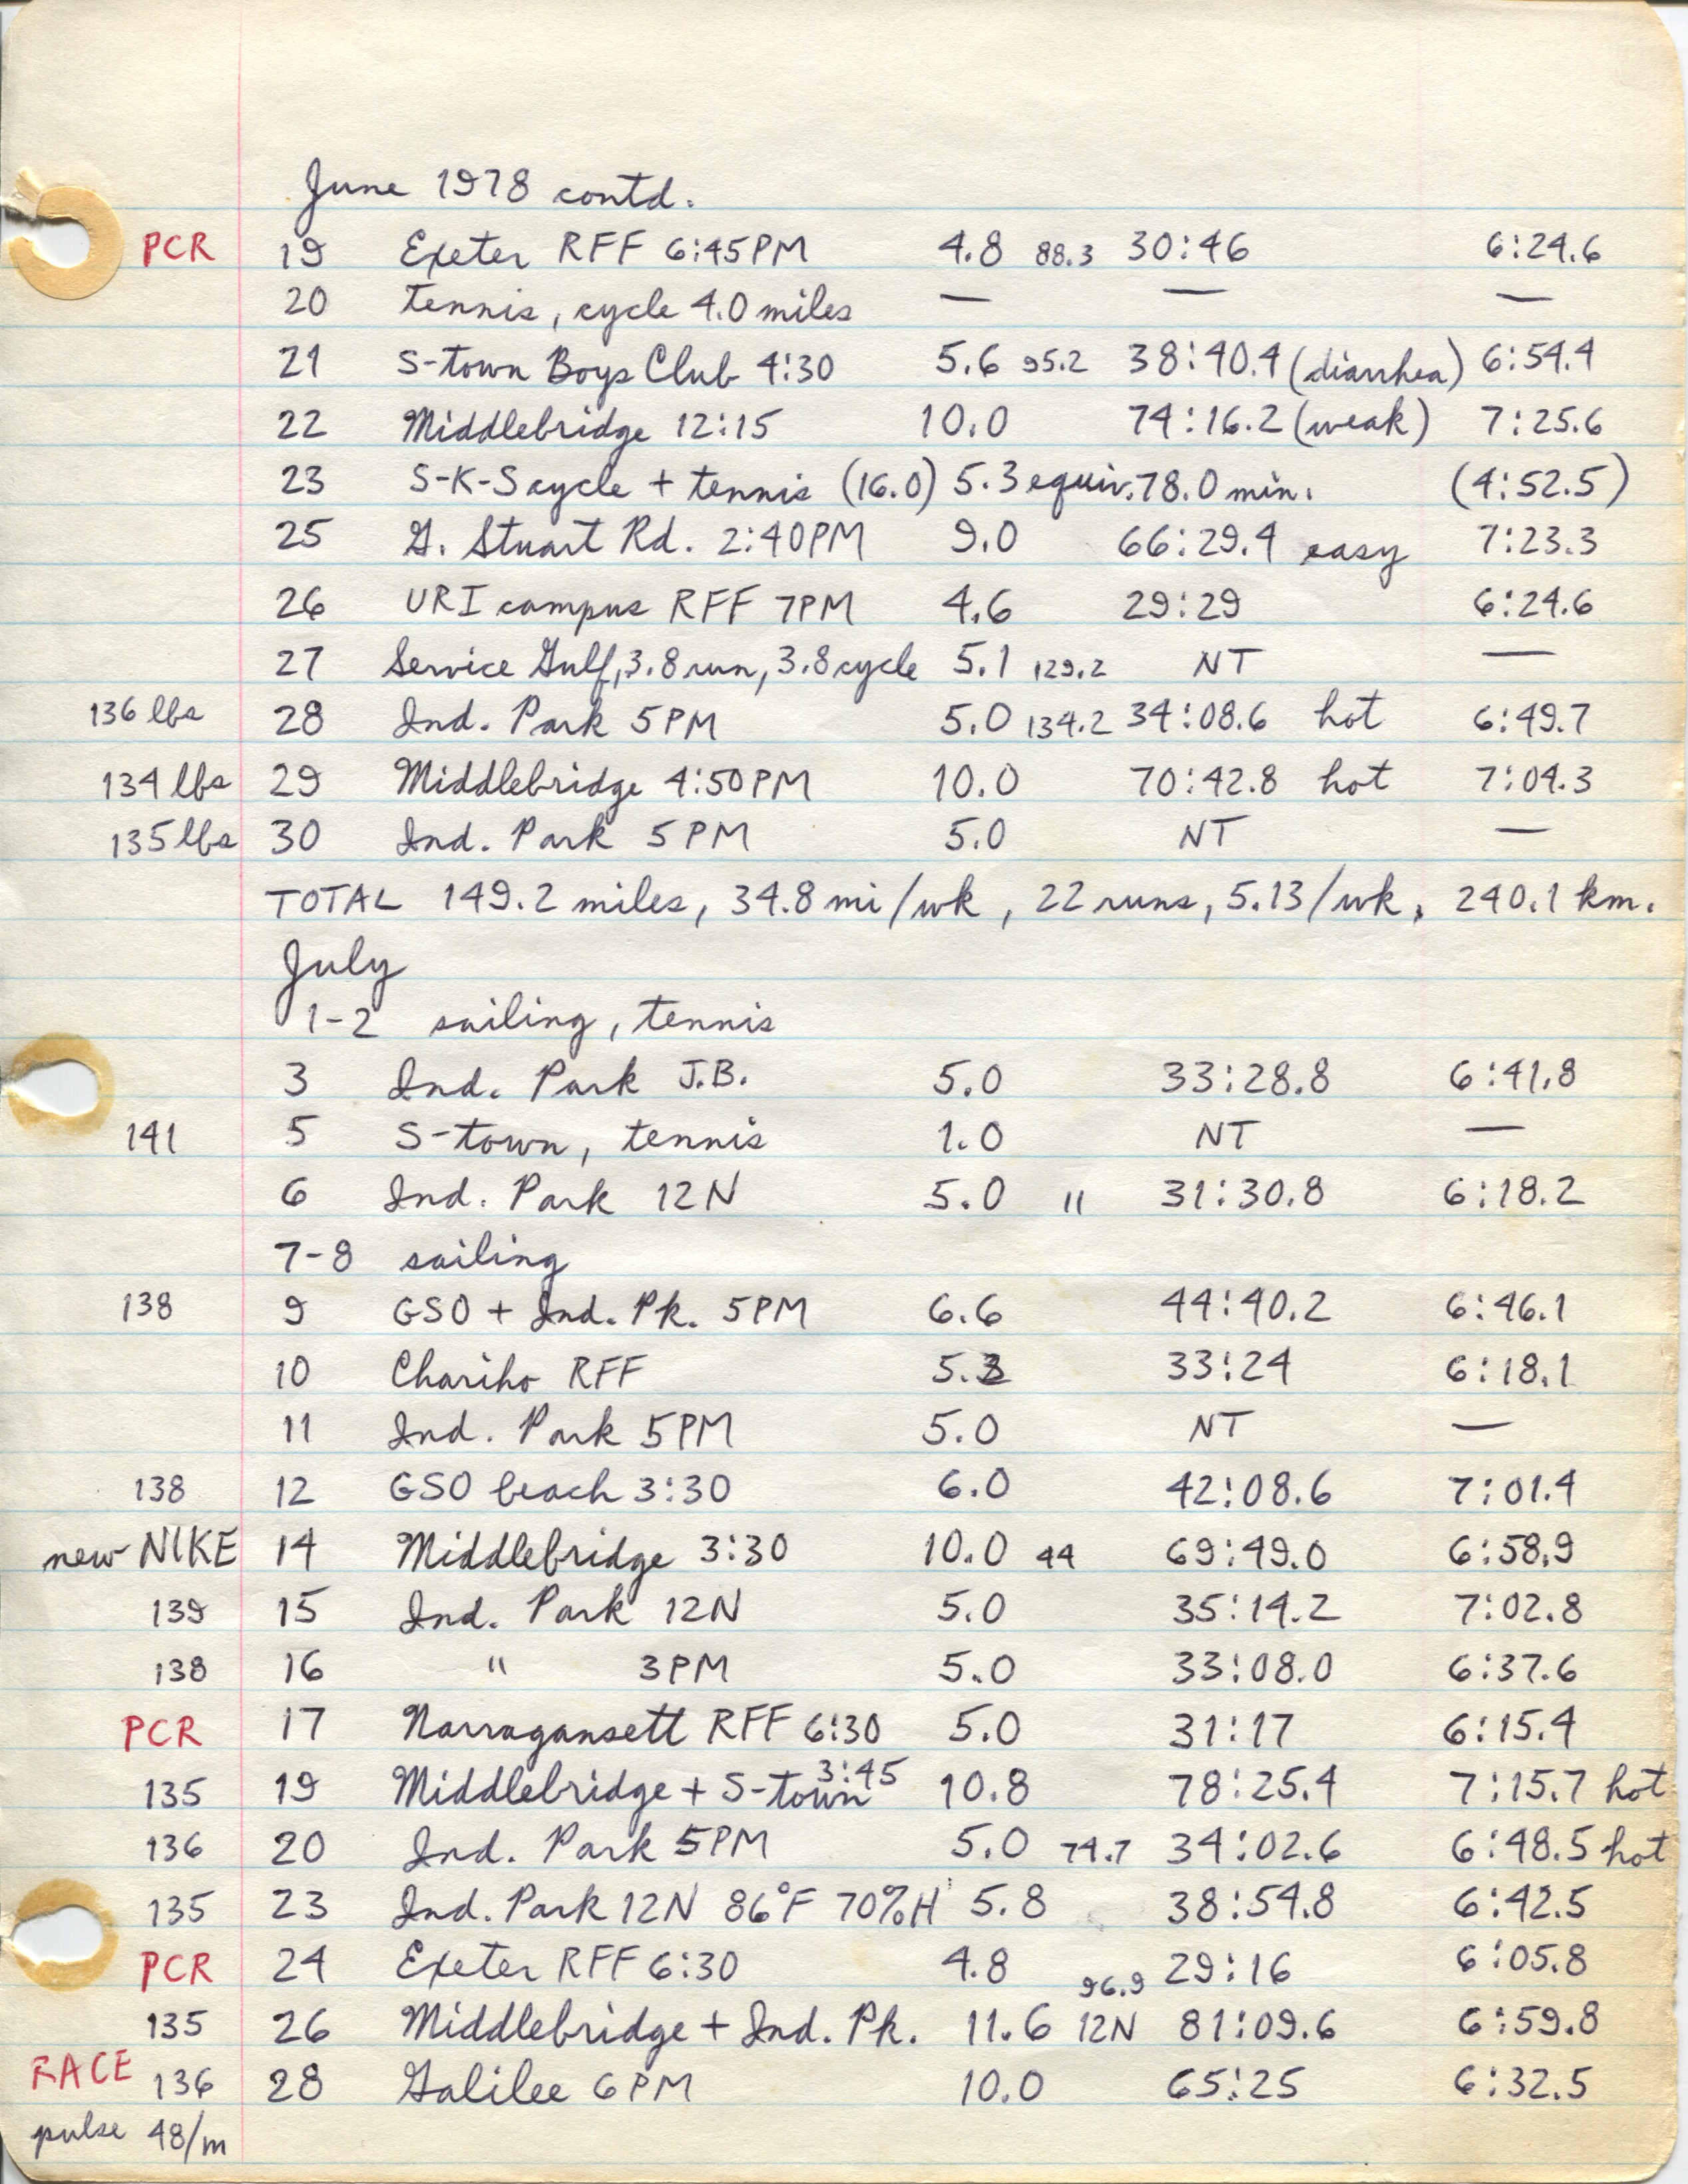 June 1978 contd.
PCR 19 Exeter RFF 6:45PM 4.8 88.3 30:46 6:24.6
20 Tennis, cycle 4.0 miles — — —
21 S-town Boys Club 4:30 5.6 95.2 38:40.4 (diarrhea) 6:54.4
22 Middlebridge 12:15 10.0 74:16.2 (weak) 7:25.6
23 S-K-S cycle + tennis (16.0) 5.3 equiv. 78.0 min. (4:52.5)
25 G. Stuart Rd. 2:40PM 9.0 66:29.4 easy 7:23.3
26 URI campus RFF 7PM 4.6 29:29 6:24.6
27 Service Gulf, 3.8 run, 3.8 cycle 5.1 129.2 NT —
136 lbs 28 Ind. Park 5PM 5.0 134.2 34:08.6 hot 6:49.7
134 lbs 29 Middlebridge 4:50PM 10.0 70:42.8 hot 7:04.3
135 lbs 30 Ind. Park 5PM 5.0 NT —
TOTAL 149.2 miles, 34.8 mi/wk, 22 runs, 5.13/wk, 240.1 km.
July
1-2 sailing, tennis
3 Ind. Park J.B. 5.0 33:28.8 6:41.8
141 5 S-town, tennis 1.0 NT —
6 Ind. Park 12N 5.0 11 31:30.8 6:18.2
7-8 sailing
138 9 GSO + Ind. Pk. 5PM 6.6 44:40.2 6:46.1
10 Chariho RFF 5.3 33:24 6:18.1
11 Ind. Park 5PM 5.0 NT —
138 12 GSO beach 3:30 6.0 42:08.6 7:01.4
new NIKE 14 Middlebridge 3:30 10.0 44 69:49.0 6:58.9
139 15 Ind. Park 12N 5.0 35:14.2 7:02.8
138 16 " 3PM 5.0 33:08.0 6:37.6
PCR 17 Narragansett RFF 6:30 5.0 31:17 6:15.4
135 19 Middlebridge + S-town 3:45 10.8 78:25.4 7:15.7 hot
136 20 Ind. Park 5PM 5.0 74.7 34:02.6 6:48.5 hot
135 23 Ind. Park 12N 86°F 70%H 5.8 38:54.8 6:42.5
PCR 24 Exeter RFF 6:30 4.8 96.9 29:16 6:05.8
135 26 Middlebridge + Ind. Pk. 11.6 12N 81:09.6 6:59.8
RACE 136 28 Galilee 6PM 10.0 65:25 6:32.5
pulse 48/m